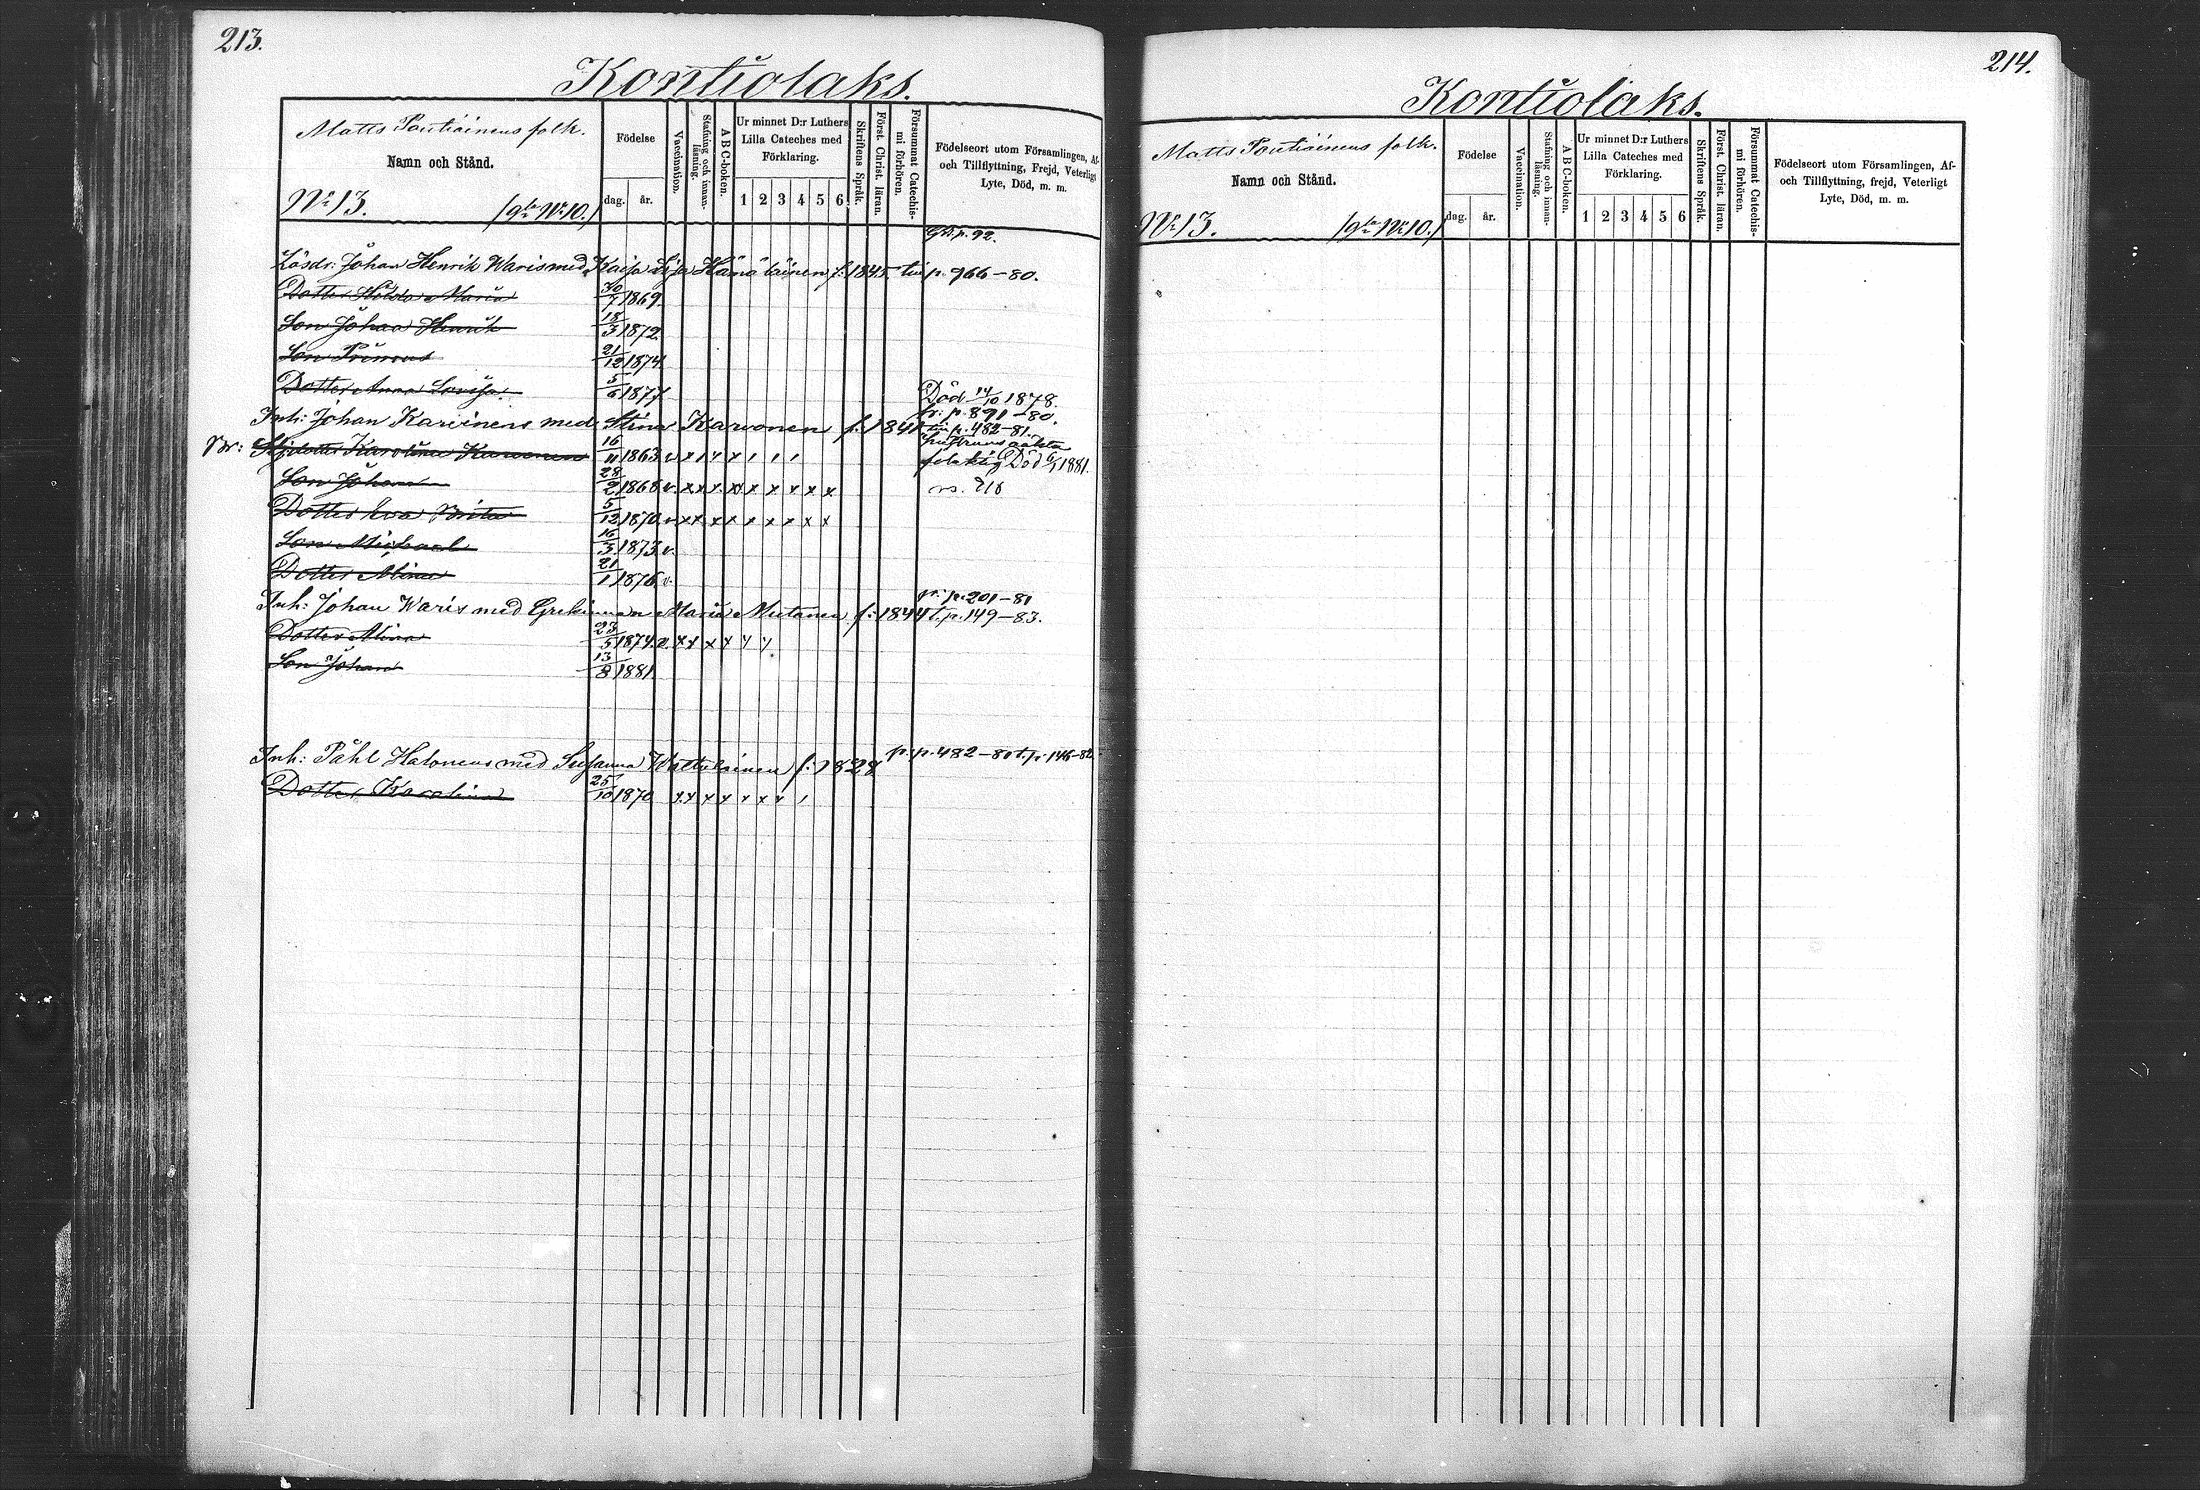 213.
Kontiolaks.
Matts Pontiäinens folk.
Namn och Stånd.
No 13. /gla No 10./
Födelse
dag. år.
Vaccination.
Stafning och innanläsning.
A B C-boken.
Ur minnet D:r Luthers Lilla Cateches med Förklaring.
1 2 3 4 5 6
Skriftens Språk.
Först. Christ. läran.
Försummat Catechismi förhören.
Födelseort utom Församlingen, Af- och Tillflyttning, Frejd, Veterligt Lyte, Död, m. m.
p. 92.
Lösdr: Johan Henrik Waris med Kaisa Lisa Hämäläinen f: 1845. till p. 966-80.
Dotter Maria 30/7 1869.
Son Johan Henrik 18/3 1872.
Son Primus 21/12 1874.
Dotter Anna Lovisa. 5/6 1877 Död 14/10 1878.
fr: p. 891-80.
Inh: Johan Karvinens med Stina Karvonen f: 1841 till p. 482-81.
Karolina Karvonen 16/11 1863 v x / x x / / / Död 6/1 1881.
Son Johan 28/2 1868 v. x x x x x x x x x
Dotter Eva Brita 5/12 1870 v x x x x x x x x
Son Michael 16/3 1873 v.
Dotter Alina 21/1 1876 v.
fr: p. 201-81
Inh: Johan Waris med Grekinnan Maria Mutanen f: 1844 t. p. 149-83.
Dotter Alina 23/5 1874. v. x x x x x x
Son Johan 13/8 1881
Inh: Påhl Halonens med Susanna Wattulainen f: 1828 fr. p. 482-80 t. p. 146-82
Dotter Karolina 25/10 1870 x x x x x x x /
214.
Kontiolaks.
Matts Pontiäinens folk.
Namn och Stånd.
No 13. /gla No 10./
Födelse
dag. år.
Vaccination.
Stafning och innanläsning.
A B C-boken.
Ur minnet D:r Luthers Lilla Cateches med Förklaring.
1 2 3 4 5 6
Skriftens Språk.
Först. Christ. läran.
Försummat Catechismi förhören.
Födelseort utom Församlingen, Af- och Tillflyttning, frejd, Veterligt Lyte, Död, m. m.